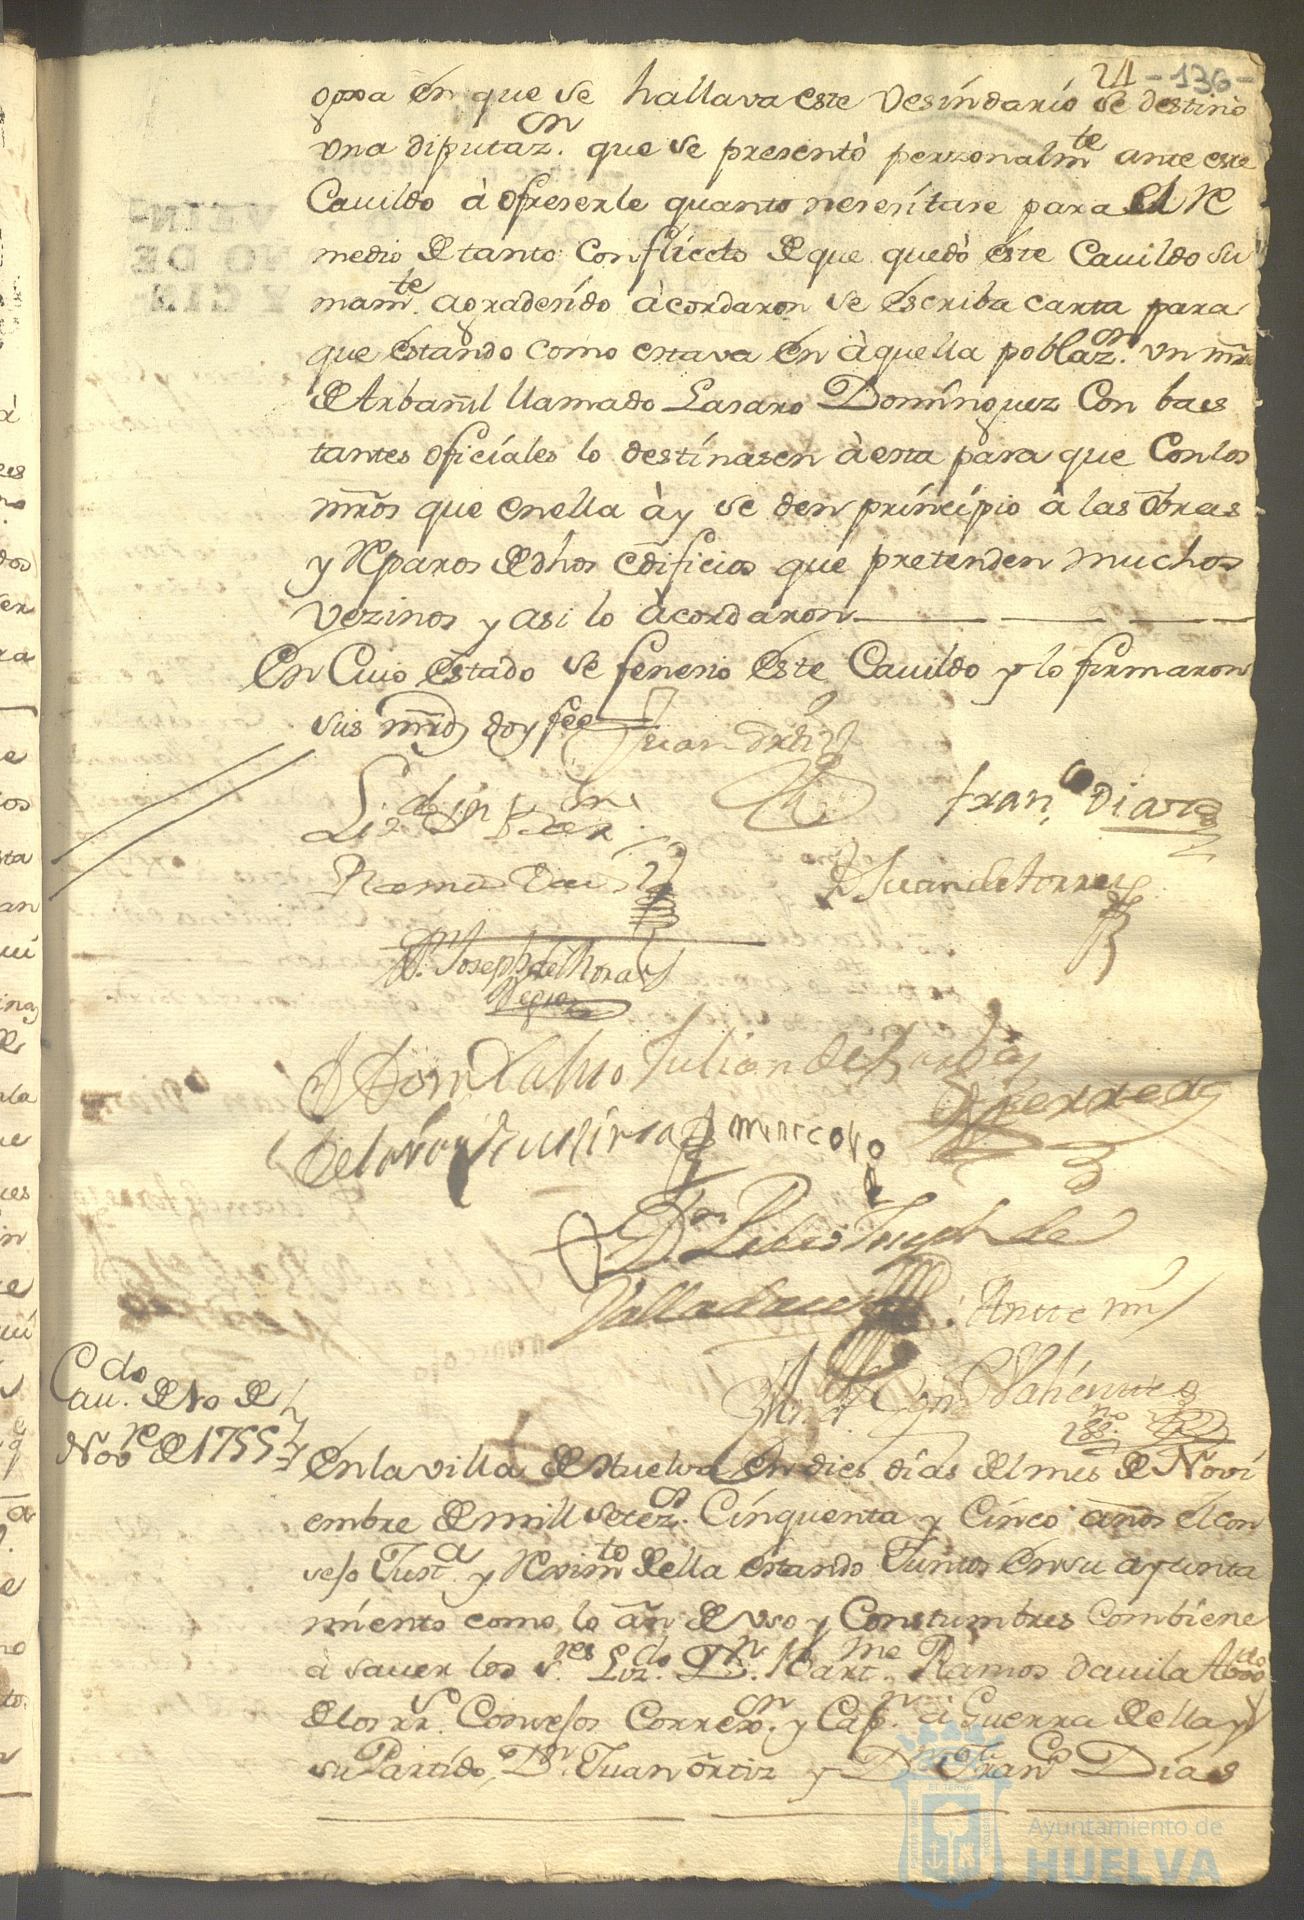 21 - 136 -
en que se hallava este Vesindario se destino
Vna diputaz.on que se presentò perzonalmte ante este
Cavildo à ofreserle quanto nesesitare para el re
medio de tanto Conflicto de que quedò este Cavildo su
mamte. agradesido àcordaron se escriba carta para
que estando como estava en àquella poblaz.on vn mro
de Arbañil llamado Lasaro Dominguez Con bas
tantes oficiales lo destinasen à esta para que Con los
mros que en ella ày se den principio à las obras
y reparos de dhos edificios que pretenden muchos
Vezinos y asi lo àcordaron
En Cuio estado se fenesio este Cavildo y lo firmaron
sus mrds doy fee
Juan Ortiz
Franco. Diaz
Ramos Davila
D Juan de Torres
Dn. Joseph de Mora
Don Pablo Julian de
Dn Joseph de
Ante mi
Cavdo. de 10 de
Novre de 1755
En la villa de Huelva en dies dias del mes de Novi
embre de mill setezs. Cinquenta y Cinco años el Con
sejo Justa. y rximto della estando Juntos en su ayunta
miento como lo àn de vso y Constumbres Combiene
à saver los sres. Lizdo. Dn. Bartme. Ramos davila Abdo
de los rrs. Consejos Correxon. y Capn. à Guerra della y
su Partido, Dn. Juan Ortiz y Dn Franco Dias
Ayuntamiento de
HUELVA